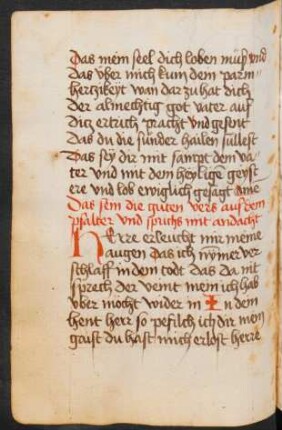 Das mein seel dich loben muß vnd
das vber mich kum dem parm=
hertzikeyt wan dar zu hat dich
der almechtig got vater auf
ditz ertrich pracht vnd gesent
das du die sunder hailen süllest
Das sey dir mit sampt dem va=
ter vnd mit dem heylige geyst
ere vnd lob ewiglich gesagt ame
Das sein die guten vers auß dem
psalter vnd sprichs mit andacht
Herre erleucht mir meine
augen das ich nymer ver
schlaff in dem todt das da nit
sprech der veint mein ich hab
vber mocht wider in In dein
hent herr so pefilch ich dir mein
geist du hast mich erlost herre